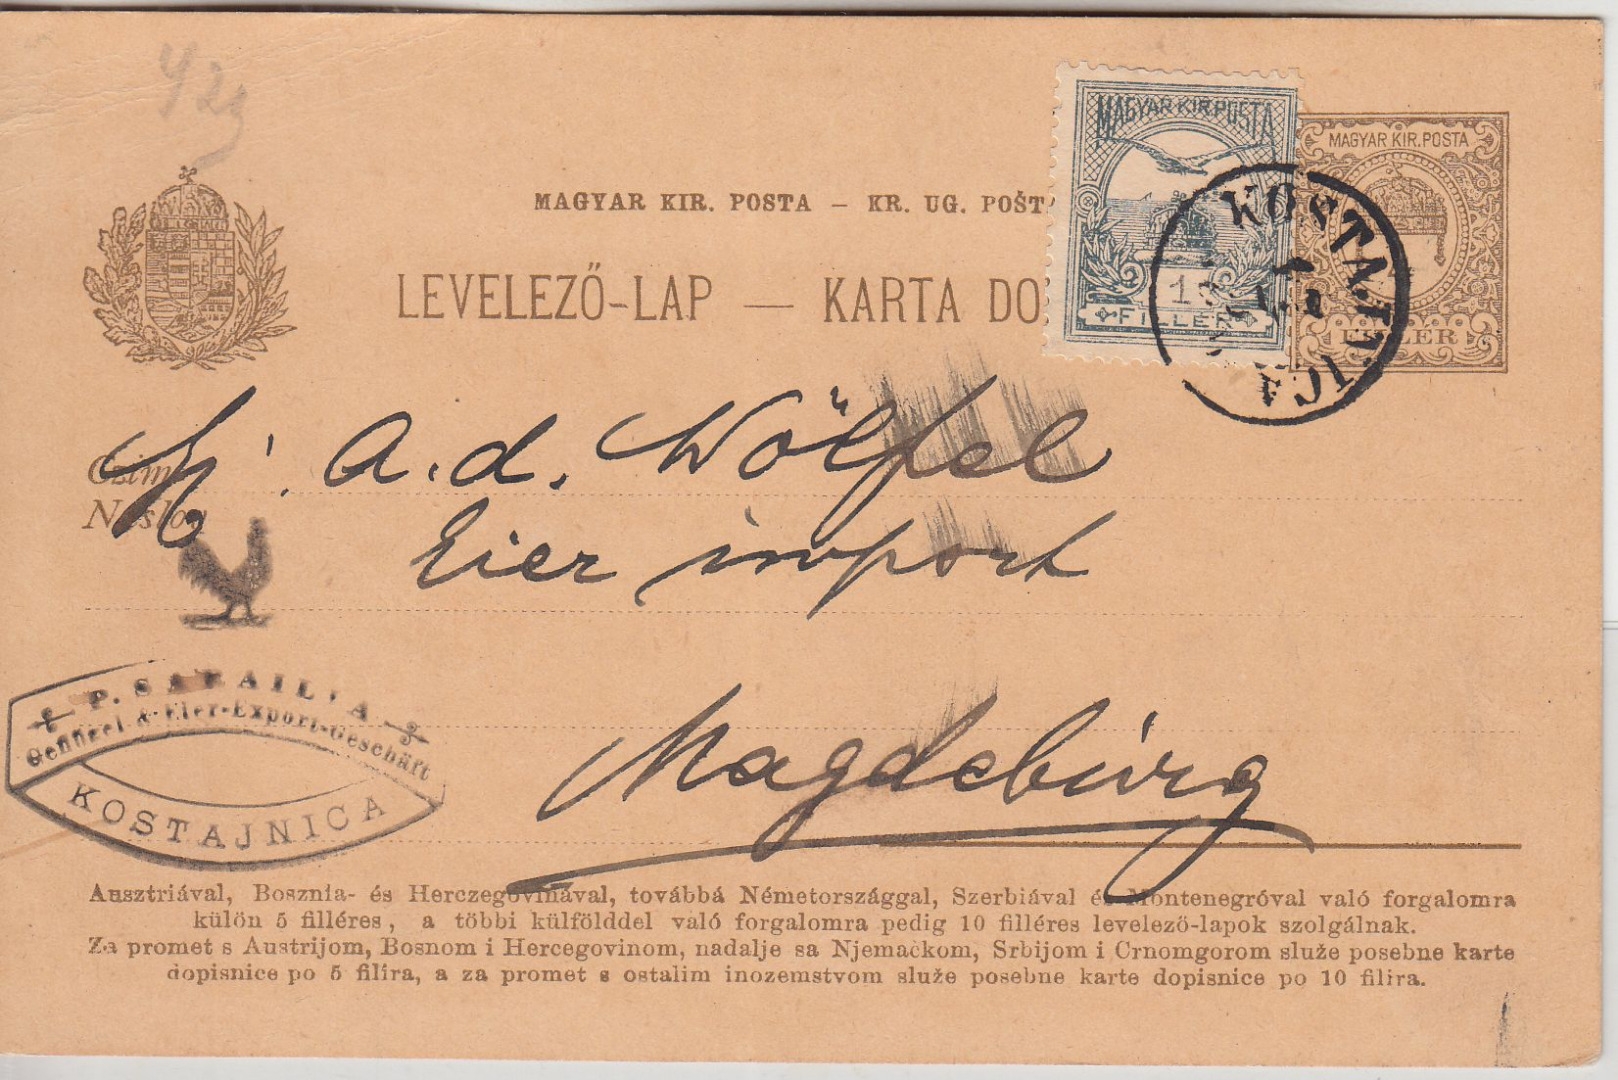 MAGYAR KIR. POSTA
MAGYAR KIR. POSTA
MAGYAR KIR. POSTA – KR. UG. POŠT
LEVELEZŐ-LAP — KARTA DO
1
FILLÉR
KOSTAJNICA
A. d. Wölfel
Eier import
P. SARAILIJA
Geflügel & Eier-Export-Geschäft
KOSTAJNICA
Magdebúrg
Ausztriával, Bosznia- és Herczegovinával, továbbá Németországgal, Szerbiával és Montenegróval való forgalomra
külön 5 filléres, a többi külfölddel való forgalomra pedig 10 filléres levelező-lapok szolgálnak.
Za promet s Austrijom, Bosnom i Hercegovinom, nadalje sa Njemačkom, Srbijom i Crnomgorom služe posebne karte
dopisnice po 5 filira, a za promet s ostalim inozemstvom služe posebne karte dopisnice po 10 filira.